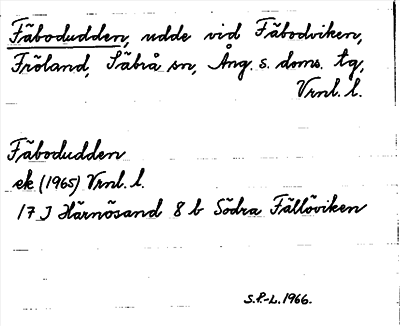 Fäbodudden, udde vid Fäbodviken,
Fröland, Säbrå sn, Ång. s. doms. tg,
Vrnl. l.
Fäbodudden
ek (1965) Vrnl. l.
17 J Härnösand 8 b Södra Fällöviken
S.F.-L. 1966.